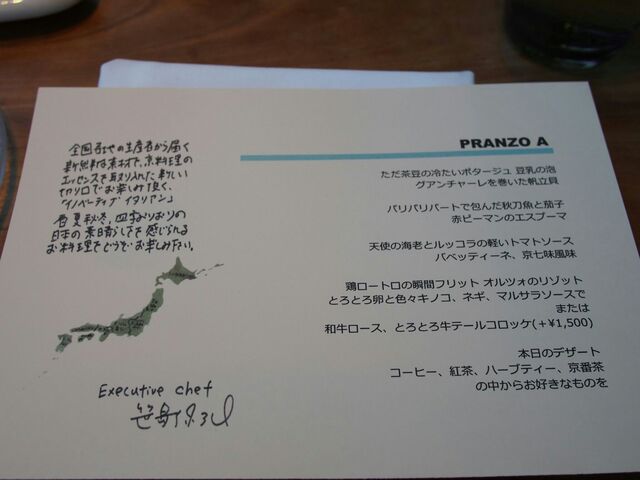 全国各地の生産者から届く
新鮮な素材で、京料理の
エッセンスを取り入れた新しい
切り口でお楽しみ頂く、
「イノベーティブ イタリアン」
春夏秋冬、四季おりおりの
日本の素晴らしさを感じられる
お料理をどうぞお楽しみ下さい。
Executive chef
PRANZO A
ただ茶豆の冷たいポタージュ 豆乳の泡
グアンチャーレを巻いた帆立貝
パリパリパートで包んだ秋刀魚と茄子
赤ピーマンのエスプーマ
天使の海老とルッコラの軽いトマトソース
バベッティーネ、京七味風味
鶏ロートロの瞬間フリット オルツォのリゾット
とろとろ卵と色々キノコ、ネギ、マルサラソースで
または
和牛ロース、とろとろ牛テールコロッケ(+¥1,500)
本日のデザート
コーヒー、紅茶、ハーブティー、京番茶
の中からお好きなものを